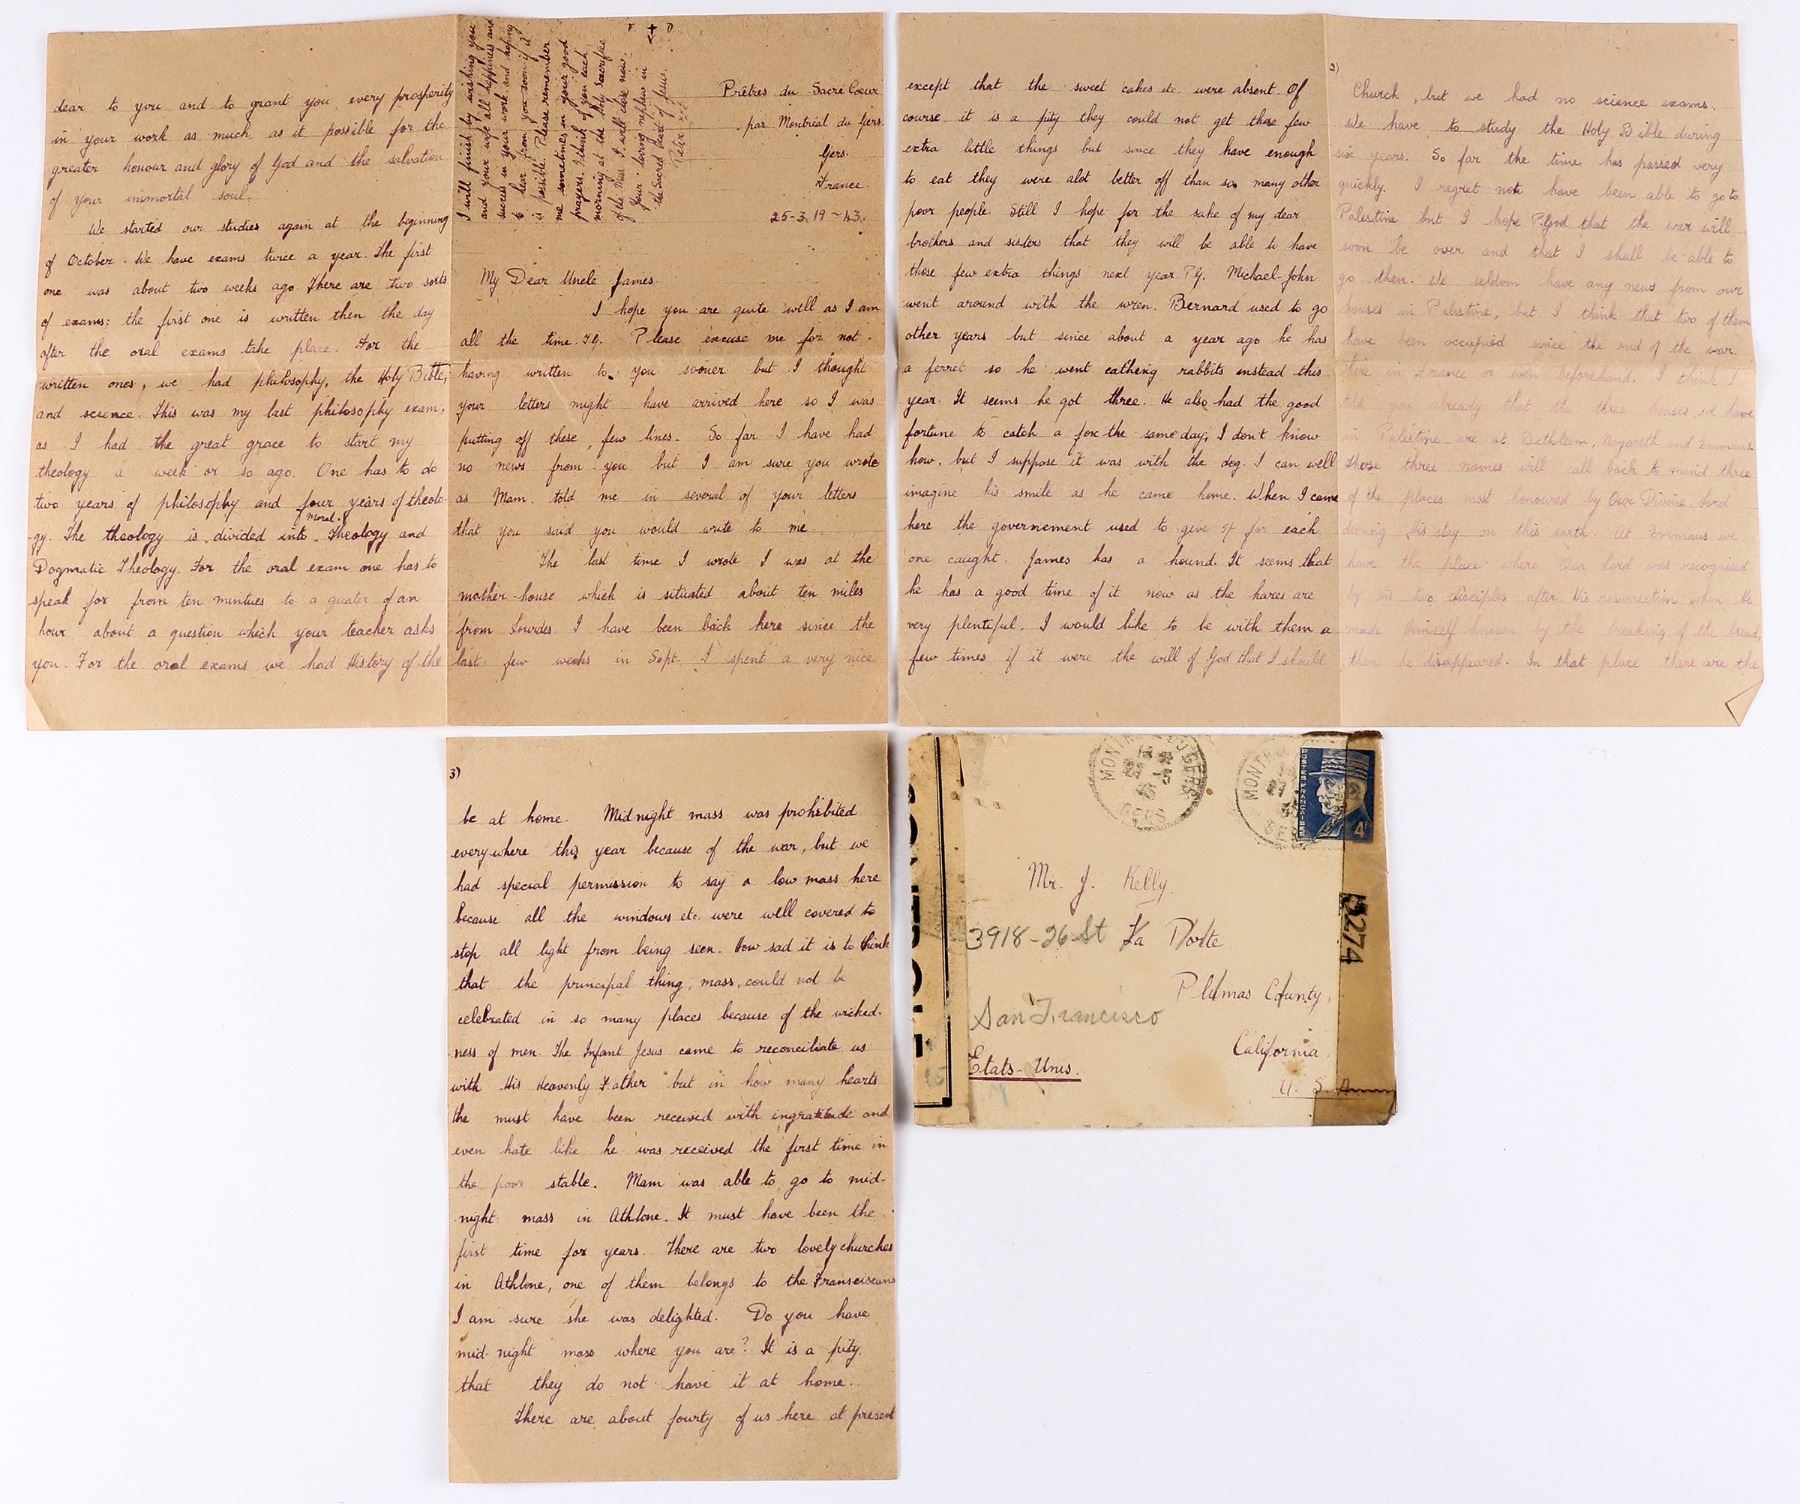 dear to you and to grant you every prosperity
in your work as much as it possible for the
greater honour and glory of God and the salvation
of your immortal soul.
We started our studies again at the beginning
of October. We have exams twice a year. The first
one was about two weeks ago There are two sorts
of exams: the first one is written then the day
after the oral exams take place. For the
written ones, we had philosophy, the Holy Bible,
and science. This was my last philosophy exam,
as I had the great grace to start my
theology a week or so ago. One has to do
two years of philosophy and four years of theolo-
-gy. The theology is divided into Moral Theology and
Dogmatic Theology. For the oral exam one has to
speak for from ten mintues to a quater of an
hour about a question which your teacher asks
you. For the oral exams we had History of the
I will finish by wishing you
and your wife all happiness and
success in your work and hoping
to hear from you soon if it
is possible. Please remember
me sometimes in your good
prayers. I think of you each
morning at the Holy Sacrifice
of the Mass. I will close now.
Your loving nephew in
the Sacred Heart of Jesus.
Peter xxx
Prêtres du Sacré Coeur
par Montréal du Gers.
Gers.
France.
25-3-19-43.
My Dear Uncle James.
I hope you are quite well as I am
all the time. T.G. Please excuse me for not
having written to you sooner but I thought
your letters might have arrived here so I was
putting off these few lines. So far I have had
no news from you but I am sure you wrote
as Mam told me in several of your letters
that you said you would write to me.
The last time I wrote I was at the
mother-house which is situated about ten miles
from Lourdes. I have been back here since the
last few weeks in Sept. I spent a very nice
except that the sweet cakes etc. were absent. Of
course it is a pity they could not get those few
extra little things but since they have enough
to eat they were alot better off than so many other
poor people. Still I hope for the sake of my dear
brothers and sisters that they will be able to have
those few extra things next year P.G. Michael-John
went around with the wren. Bernard used to go
other years but since about a year ago he has
a ferret so he went cathing rabbits instead this
year. It seems he got three. He also had the good
fortune to catch a fox the same day, I don't know
how, but I suppose it was with the dog. I can well
imagine his smile as he came home. When I came
here the governement used to give 5/ for each
one caught. James has a hound. It seems that
he has a good time of it now as the hares are
very plentiful. I would like to be with them a
few times if it were the will of God that I should
2)
Church, but we had no science exams.
We have to study the Holy Bible during
six years. So far the time has passed very
quickly. I regret not have been able to go to
Palestine but I hope P.God that the war will
soon be over and that I shall be able to
go then. We seldom have any news from our
houses in Palestine, but I think that two of them
have been occupied since the end of the war
here in France or even beforehand. I think I
told you already that the three houses we have
in Palestine are at Bethleem, Nazareth and Emmaus.
Those three names will call back to mind three
of the places most honoured by Our Divine Lord
during His stay on this earth. At Emmaus we
have the place where Our Lord was recognised
by his two disciples after His resurrection when He
made Himself known by the breaking of the bread,
then he disappeared. In that place there are the
3)
be at home. Midnight mass was prohibited
everywhere this year because of the war, but we
had special permission to say a low mass here
because all the windows etc. were well covered to
stop all light from being seen. How sad it is to think
that the principal thing, mass, could not be
celebrated in so many places because of the wicked-
ness of men. The Infant Jesus came to reconciliate us
with His Heavenly Father but in how many hearts
the must have been received with ingratitude and
even hate like he was received the first time in
the poor stable. Mam was able to go to mid-
night mass in Athlone. It must have been the
first time for years. There are two lovely churches
in Athlone, one of them belongs to the Fransciscans
I am sure she was delighted. Do you have
mid-night mass where you are? It is a pity
that they do not have it at home.
There are about fourty of us here at present
MONTREAL DU GERS
GERS
POSTES FRANÇAISES
4F
5274
Mr. J. Kelly.
3918-26 St La Porte
Plumas County,
San Francisco
California.
Etats-Unis.
U. S. A